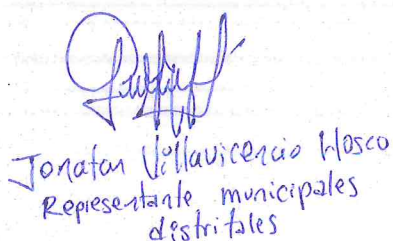 Jonatan Villavicencio Wosco
Representante municipales
distritales